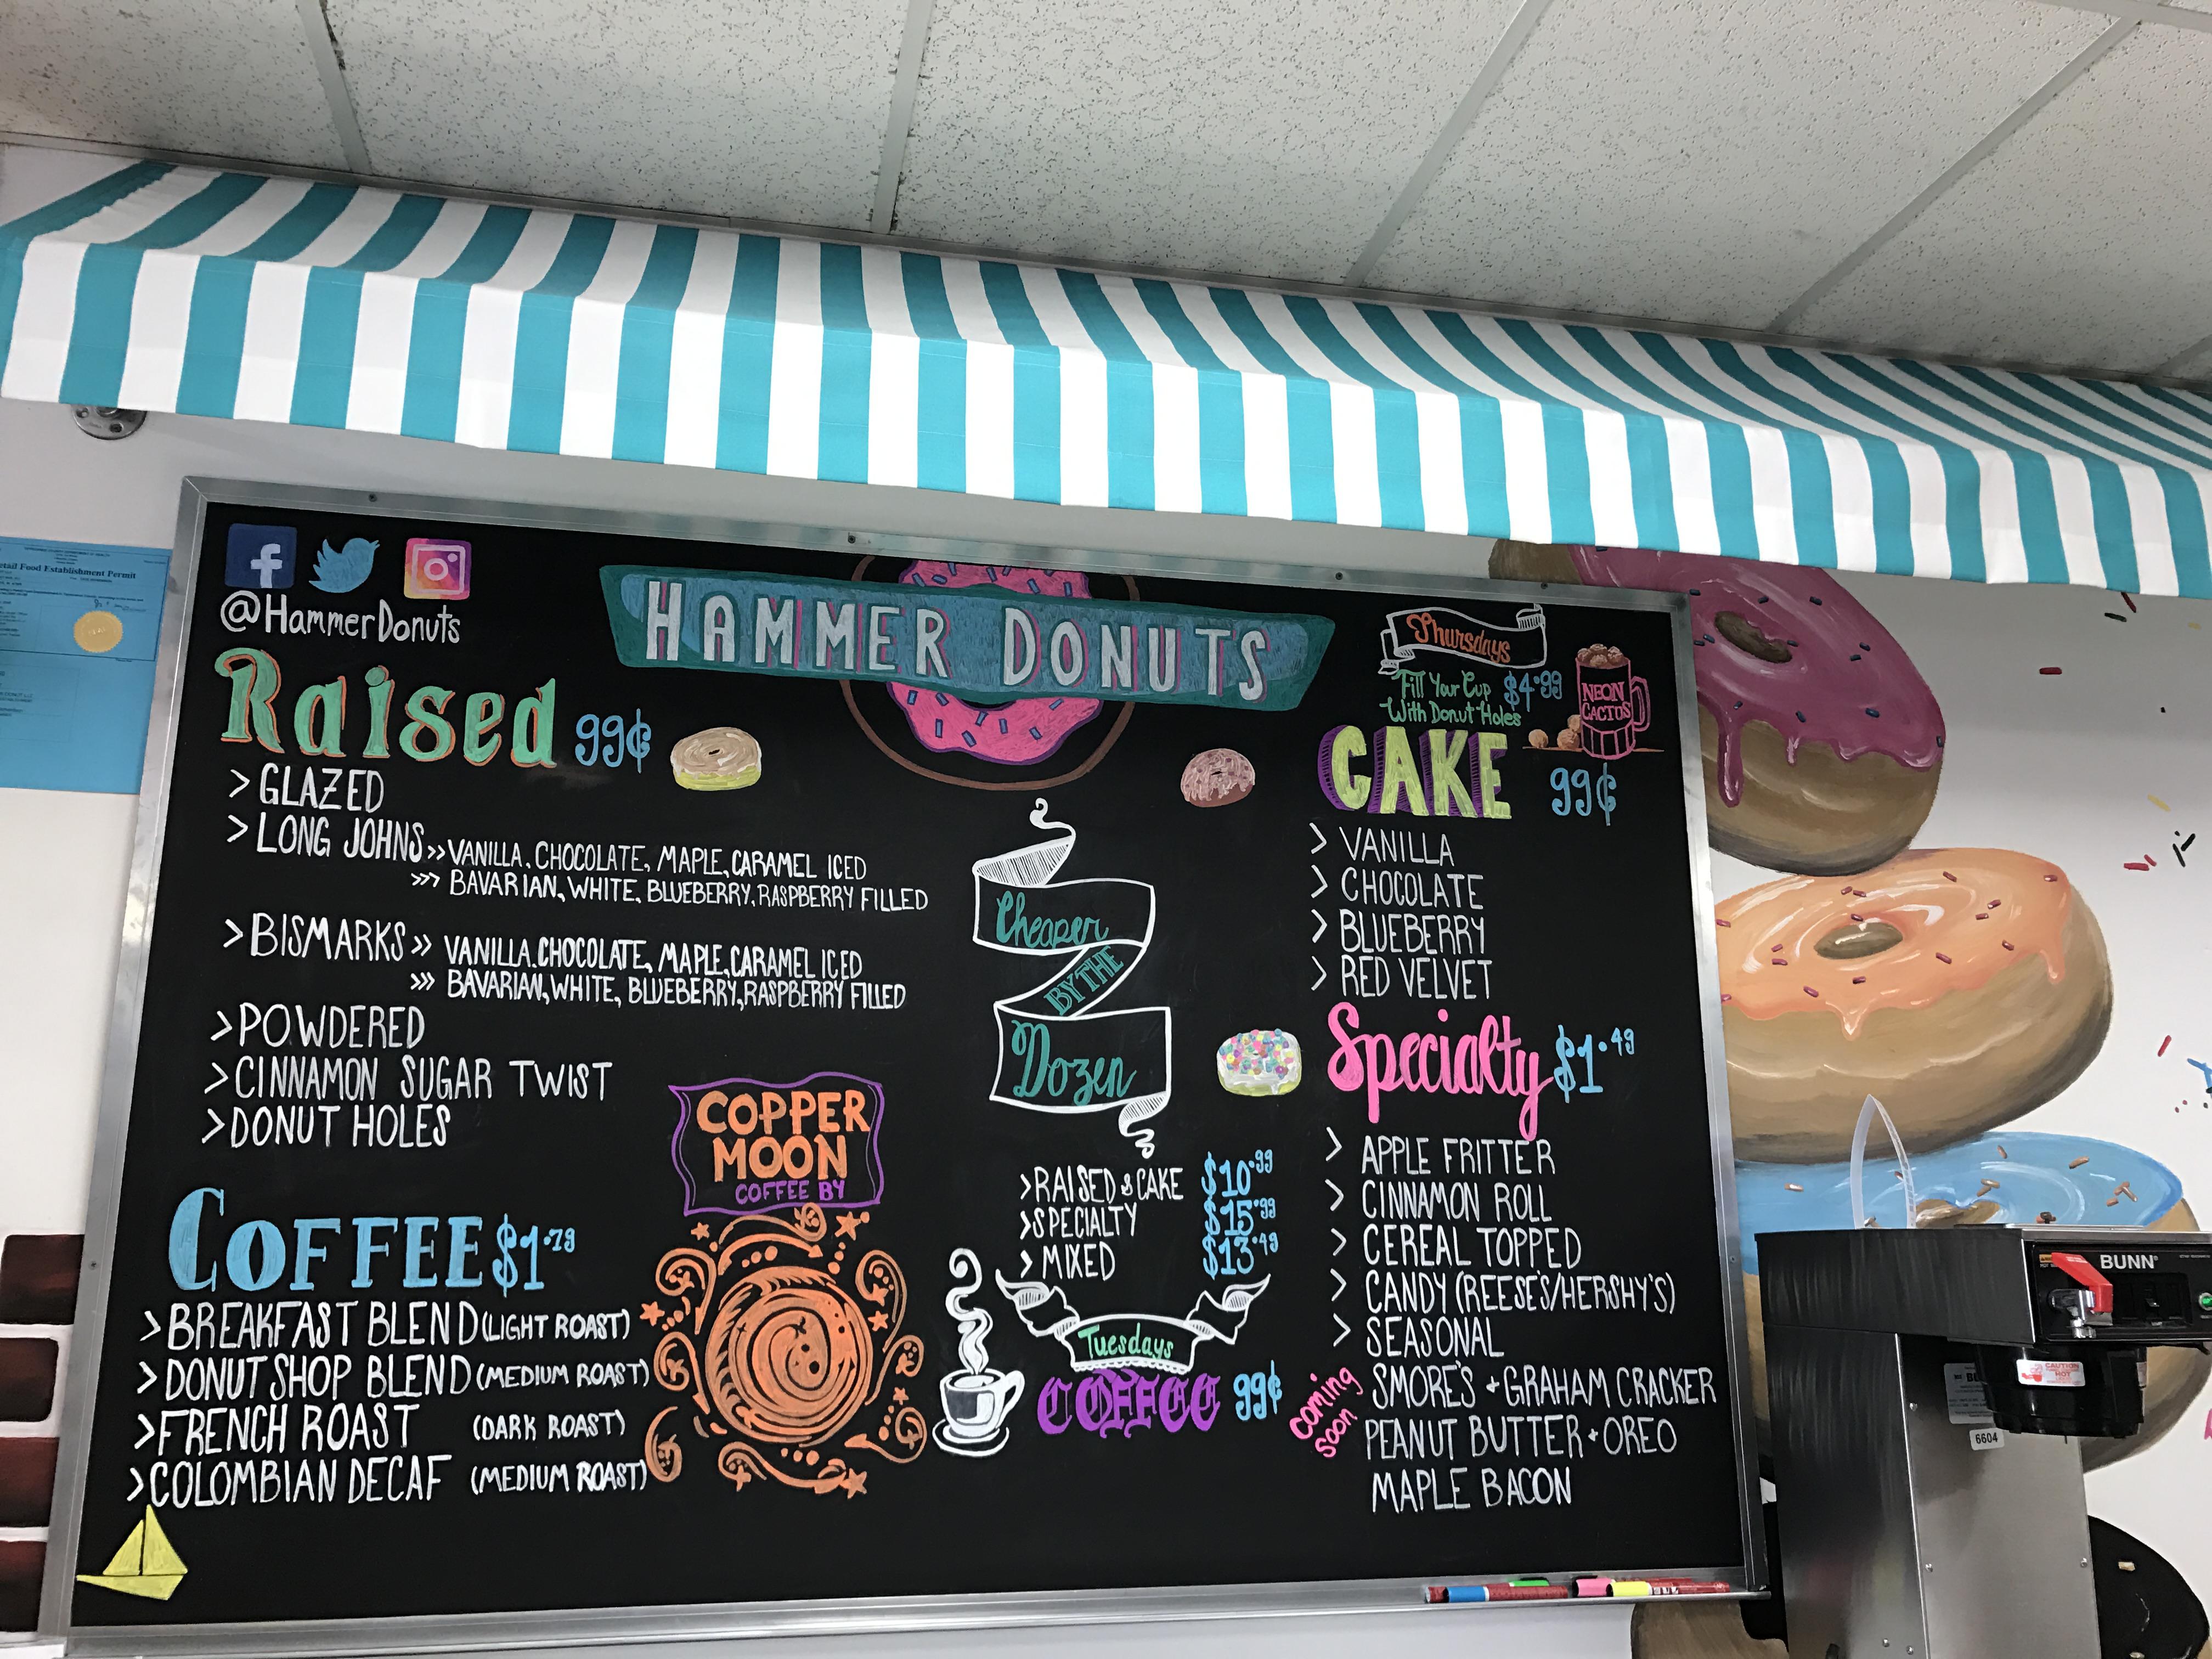 @HammerDonuts
HAMMER DONUTS
Raised 99¢
> GLAZED
> LONG JOHNS >> VANILLA, CHOCOLATE, MAPLE, CARAMEL ICED
>>> BAVARIAN, WHITE, BLUEBERRY, RASPBERRY FILLED
> BISMARKS >> VANILLA, CHOCOLATE, MAPLE, CARAMEL ICED
>>> BAVARIAN, WHITE, BLUEBERRY, RASPBERRY FILLED
> POWDERED
> CINNAMON SUGAR TWIST
> DONUT HOLES
COFFEE $1.79
> BREAKFAST BLEND (LIGHT ROAST)
> DONUT SHOP BLEND (MEDIUM ROAST)
> FRENCH ROAST (DARK ROAST)
> COLOMBIAN DECAF (MEDIUM ROAST)
COPPER
MOON
COFFEE BY
Cheaper
BY THE
Dozen
> RAISED & CAKE $10.99
> SPECIALTY $15.99
> MIXED $13.49
Tuesdays
COFFEE 99¢
Thursdays
Fill Your Cup $4.99
With Donut Holes
NEON
CACTUS
CAKE 99¢
> VANILLA
> CHOCOLATE
> BLUEBERRY
> RED VELVET
Specialty $1.49
> APPLE FRITTER
> CINNAMON ROLL
> CEREAL TOPPED
> CANDY (REESE'S/HERSHY'S)
> SEASONAL
coming
soon
SMORE'S + GRAHAM CRACKER
PEANUT BUTTER + OREO
MAPLE BACON
tail Food Establishment Permit
BUNN
CAUTION
HOT
6604